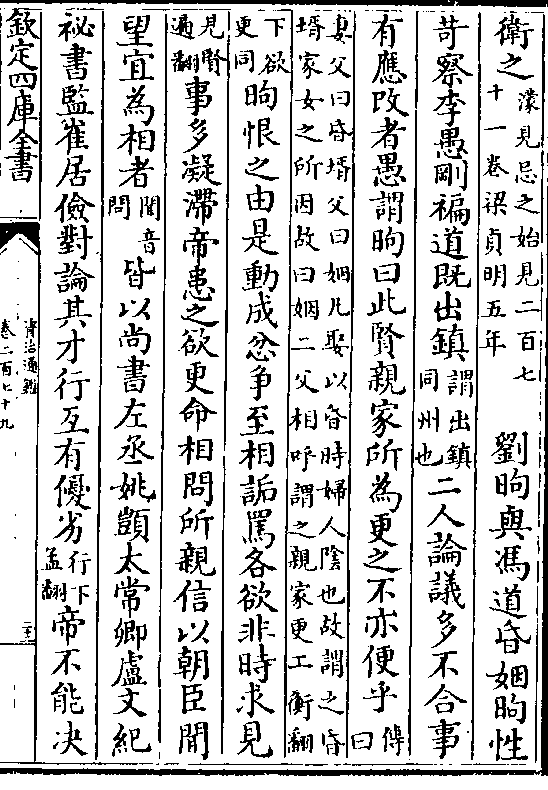 衛之濛見忌之始見二百七十一卷梁貞明五年　劉昫與馮道昏姻昫性
苛察李愚剛褊道既出鎮謂出鎮同州也二人論議多不合事
有應改者愚謂昫曰此賢親家所為更之不亦便乎傳曰
妻父曰昏壻父曰姻凡娶以昏時婦人陰也故謂之昏
壻家女之所因故曰姻二父相呼謂之親家更工衡翻
下欲更同昫恨之由是動成忿争至相詬罵各欲非時求見
見賢遍翻事多凝滯帝患之欲更命相問所親信以朝臣聞
望宜為相者聞音問皆以尚書左丞姚顗太常卿盧文紀
祕書監崔居儉對論其才行互有優劣行下孟翻帝不能决
欽定四庫全書
資治通鑑
卷二百七十九